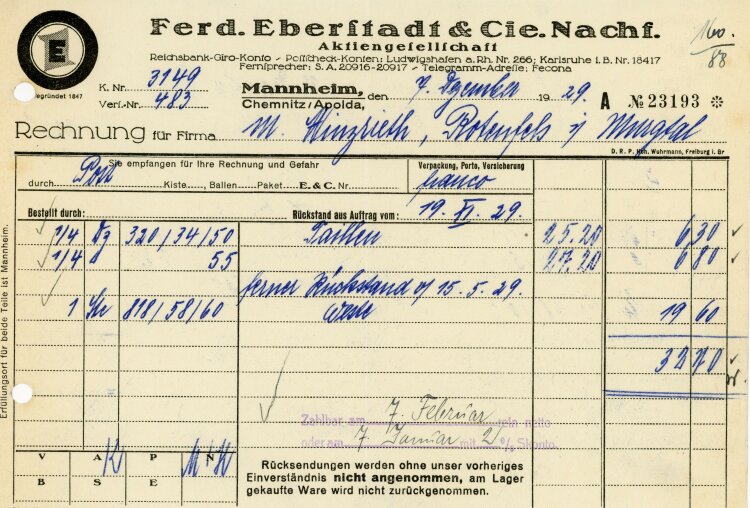 Ferd. Eberstadt & Cie. Nachf.
Aktiengesellschaft
Reichsbank-Giro-Konto - Postscheck-Konten: Ludwigshafen a.Rh. Nr. 266; Karlsruhe i. B. Nr. 18417
Fernsprecher: S. A. 20916-20917 - Telegramm-Adresse: Fecona
E
Gegründet 1847
88
K. Nr. 3149
Vers.-Nr. 483
Mannheim,
Chemnitz/Apolda, den 7. Dezember 1929.
A № 23193 ✻
Rechnung für Firma M. Hinzrieth, Rotenfels i/ Murgtal
D. R. P. Hch. Wuhrmann, Freiburg i. Br
Sie empfangen für Ihre Rechnung und Gefahr
durch Post Kiste, Ballen Paket E. & C. Nr.
Verpackung, Porto, Versicherung
franco
Bestellt durch: Rückstand aus Auftrag vom: 19. XI. 29.
1/4 Dz 320/34/50 Taillen 25.20 6 30
1/4 " 55 27.20 6 80
ferner Rückstand v/ 15.5.29.
1 Stc 818/58/60 Weste 19 60
32 70
Zahlbar am 7. Februar rein netto
oder am 7 Januar mit 2 % Skonto
V A K P N M+H
B S E
Rücksendungen werden ohne unser vorheriges
Einverständnis nicht angenommen, am Lager
gekaufte Ware wird nicht zurückgenommen.
Erfüllungsort für beide Teile ist Mannheim.